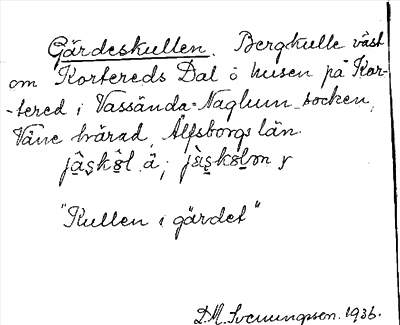 Gärdeskullen. Bergkulle väst
om Kortereds Dal o husen på Kor-
-tered i Vassända-Naglum socken,
Väne härad, Älfsborgs län.
"Kullen i gärdet"
D.M. Svenningsson. 1936.